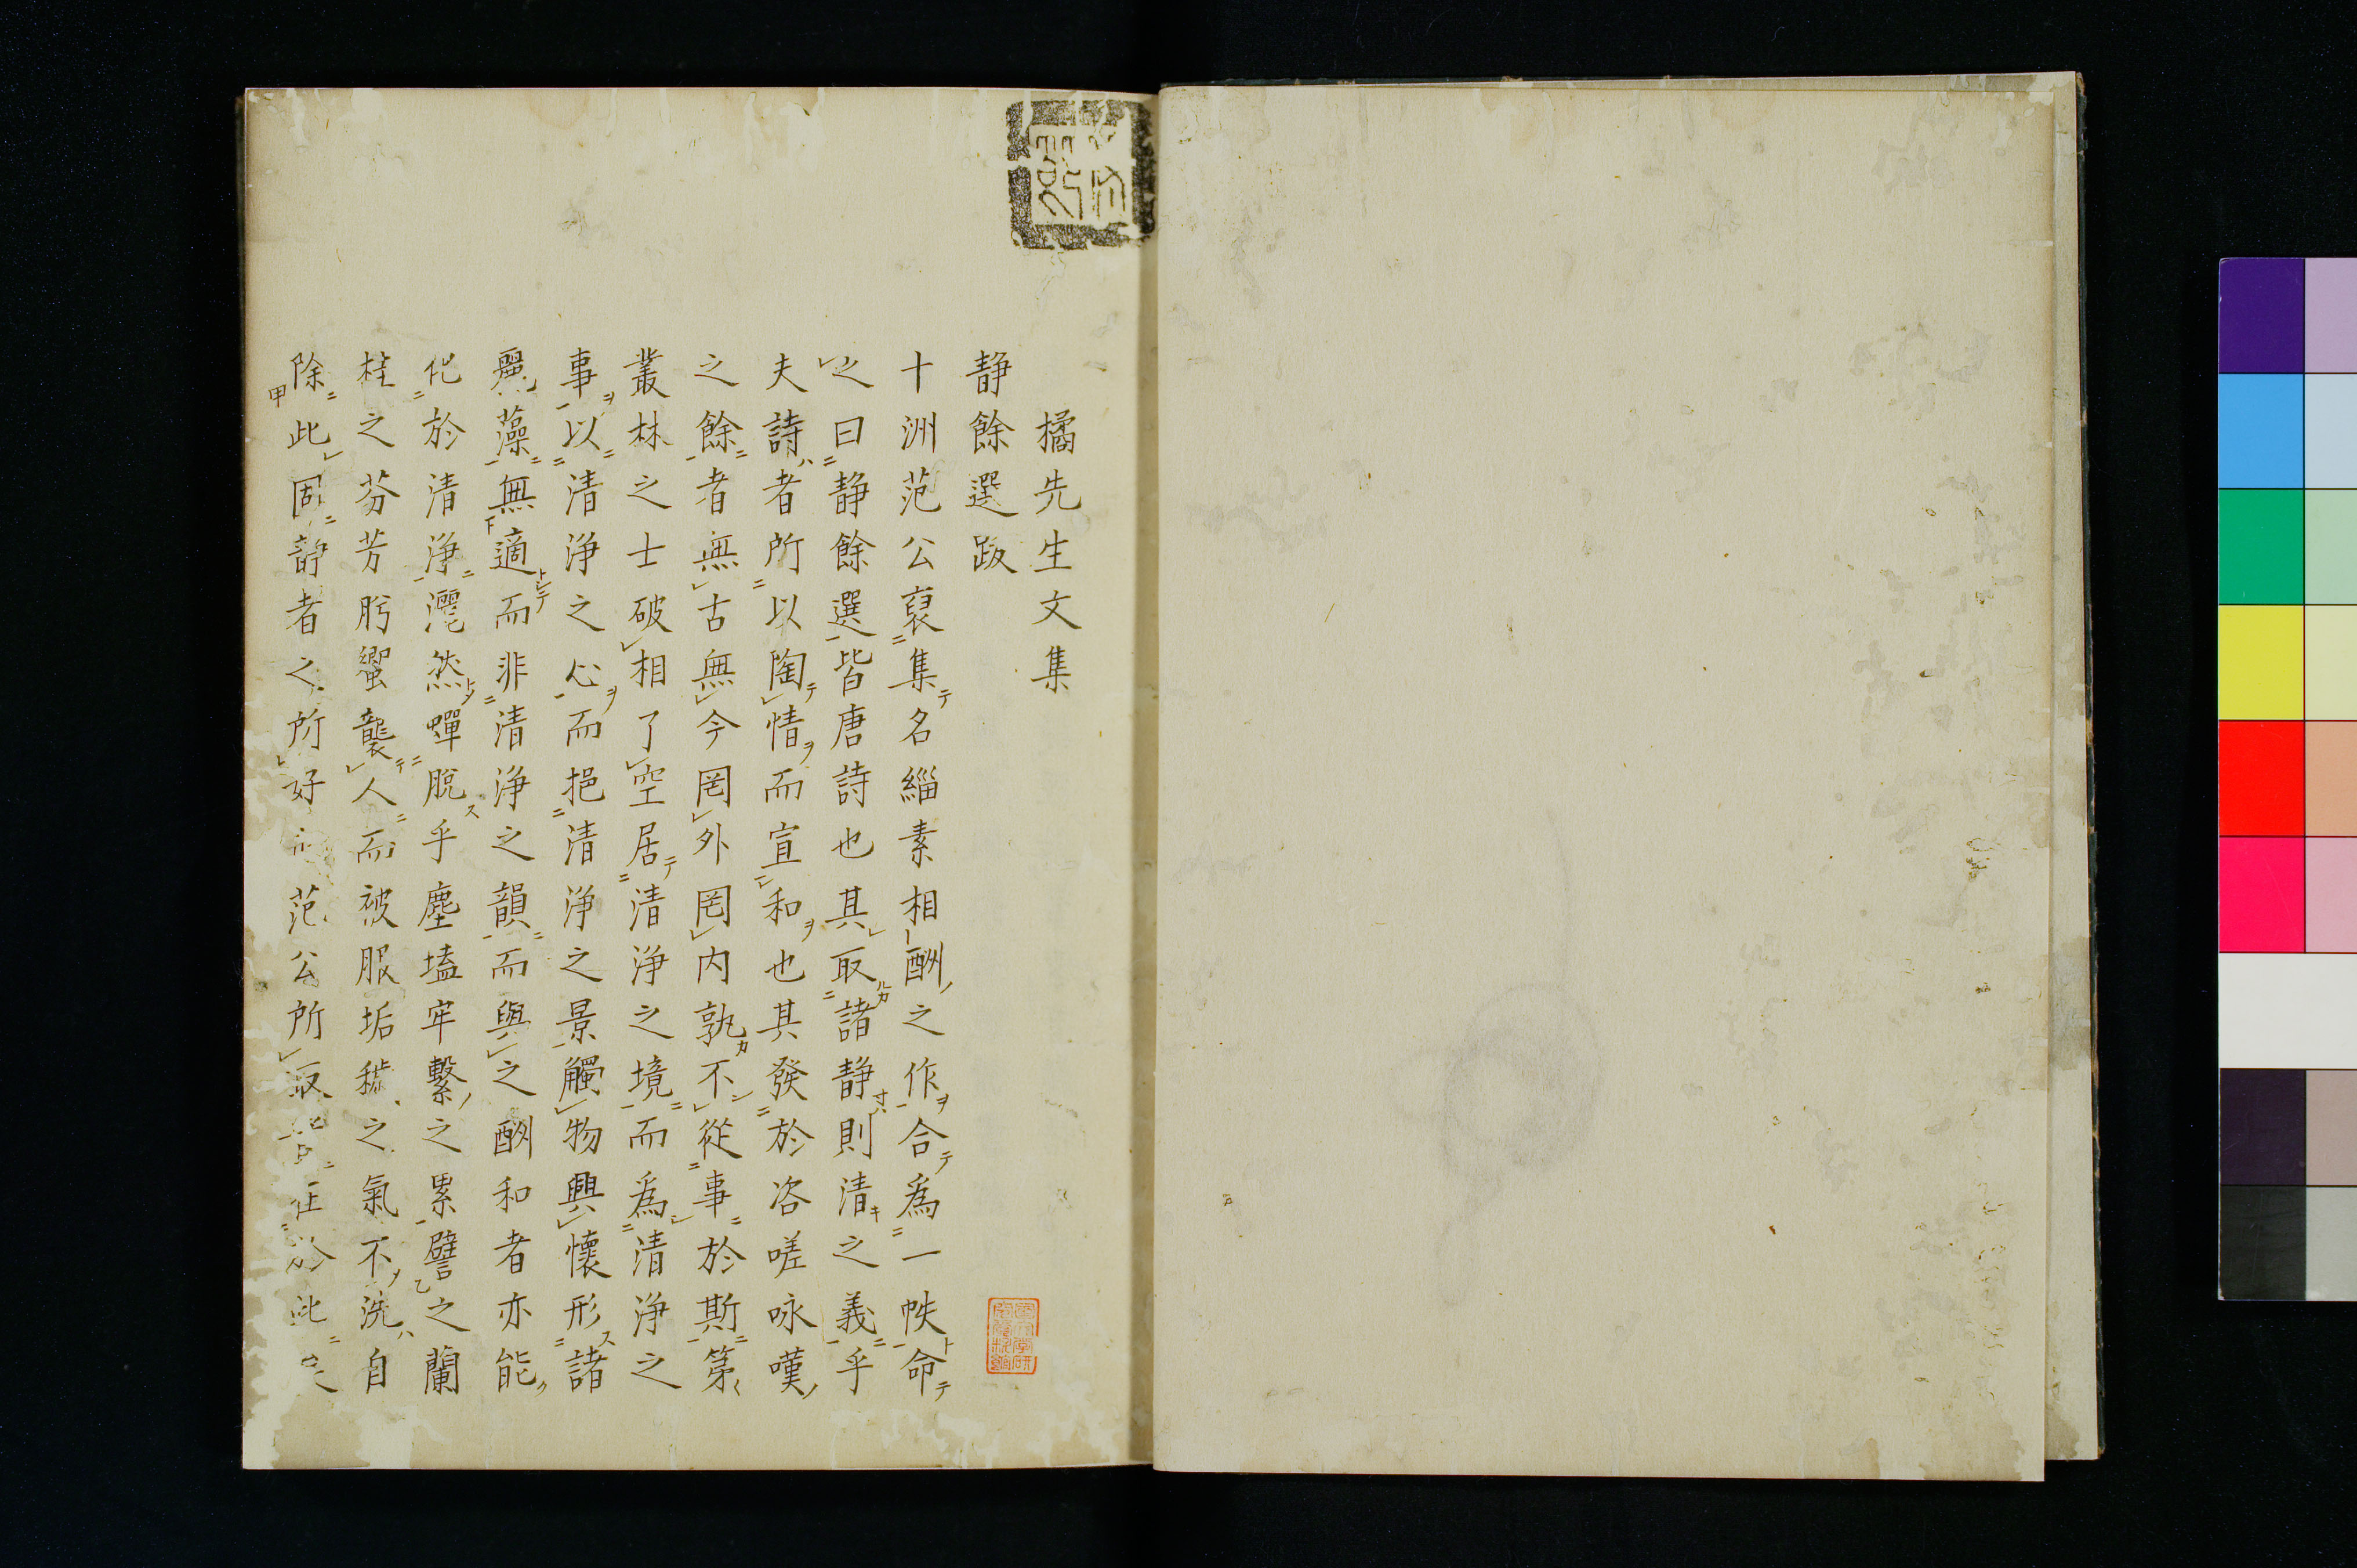 橘先生文集
静餘選跋
十洲范公裒集名緇素相酬之作合為一帙命
之曰静餘選皆唐詩也其取諸静則清之義乎
夫詩者所以陶情而宣和也其發於咨嗟咏嘆
之餘者無古無今罔外罔内孰不從事於斯第
叢林之士破相了空居清浄之境而為清浄之
事以清浄之心而挹清浄之景觸物興懷形諸
麗藻無適而非清浄之韻而與之酬和者亦能
化於清浄灑然蟬脱乎塵壒牢繫之累譬之蘭
桂之芬芳肹蠁襲人而被服垢穢之氣不洗自
除此固静者之所好范公所取在於此